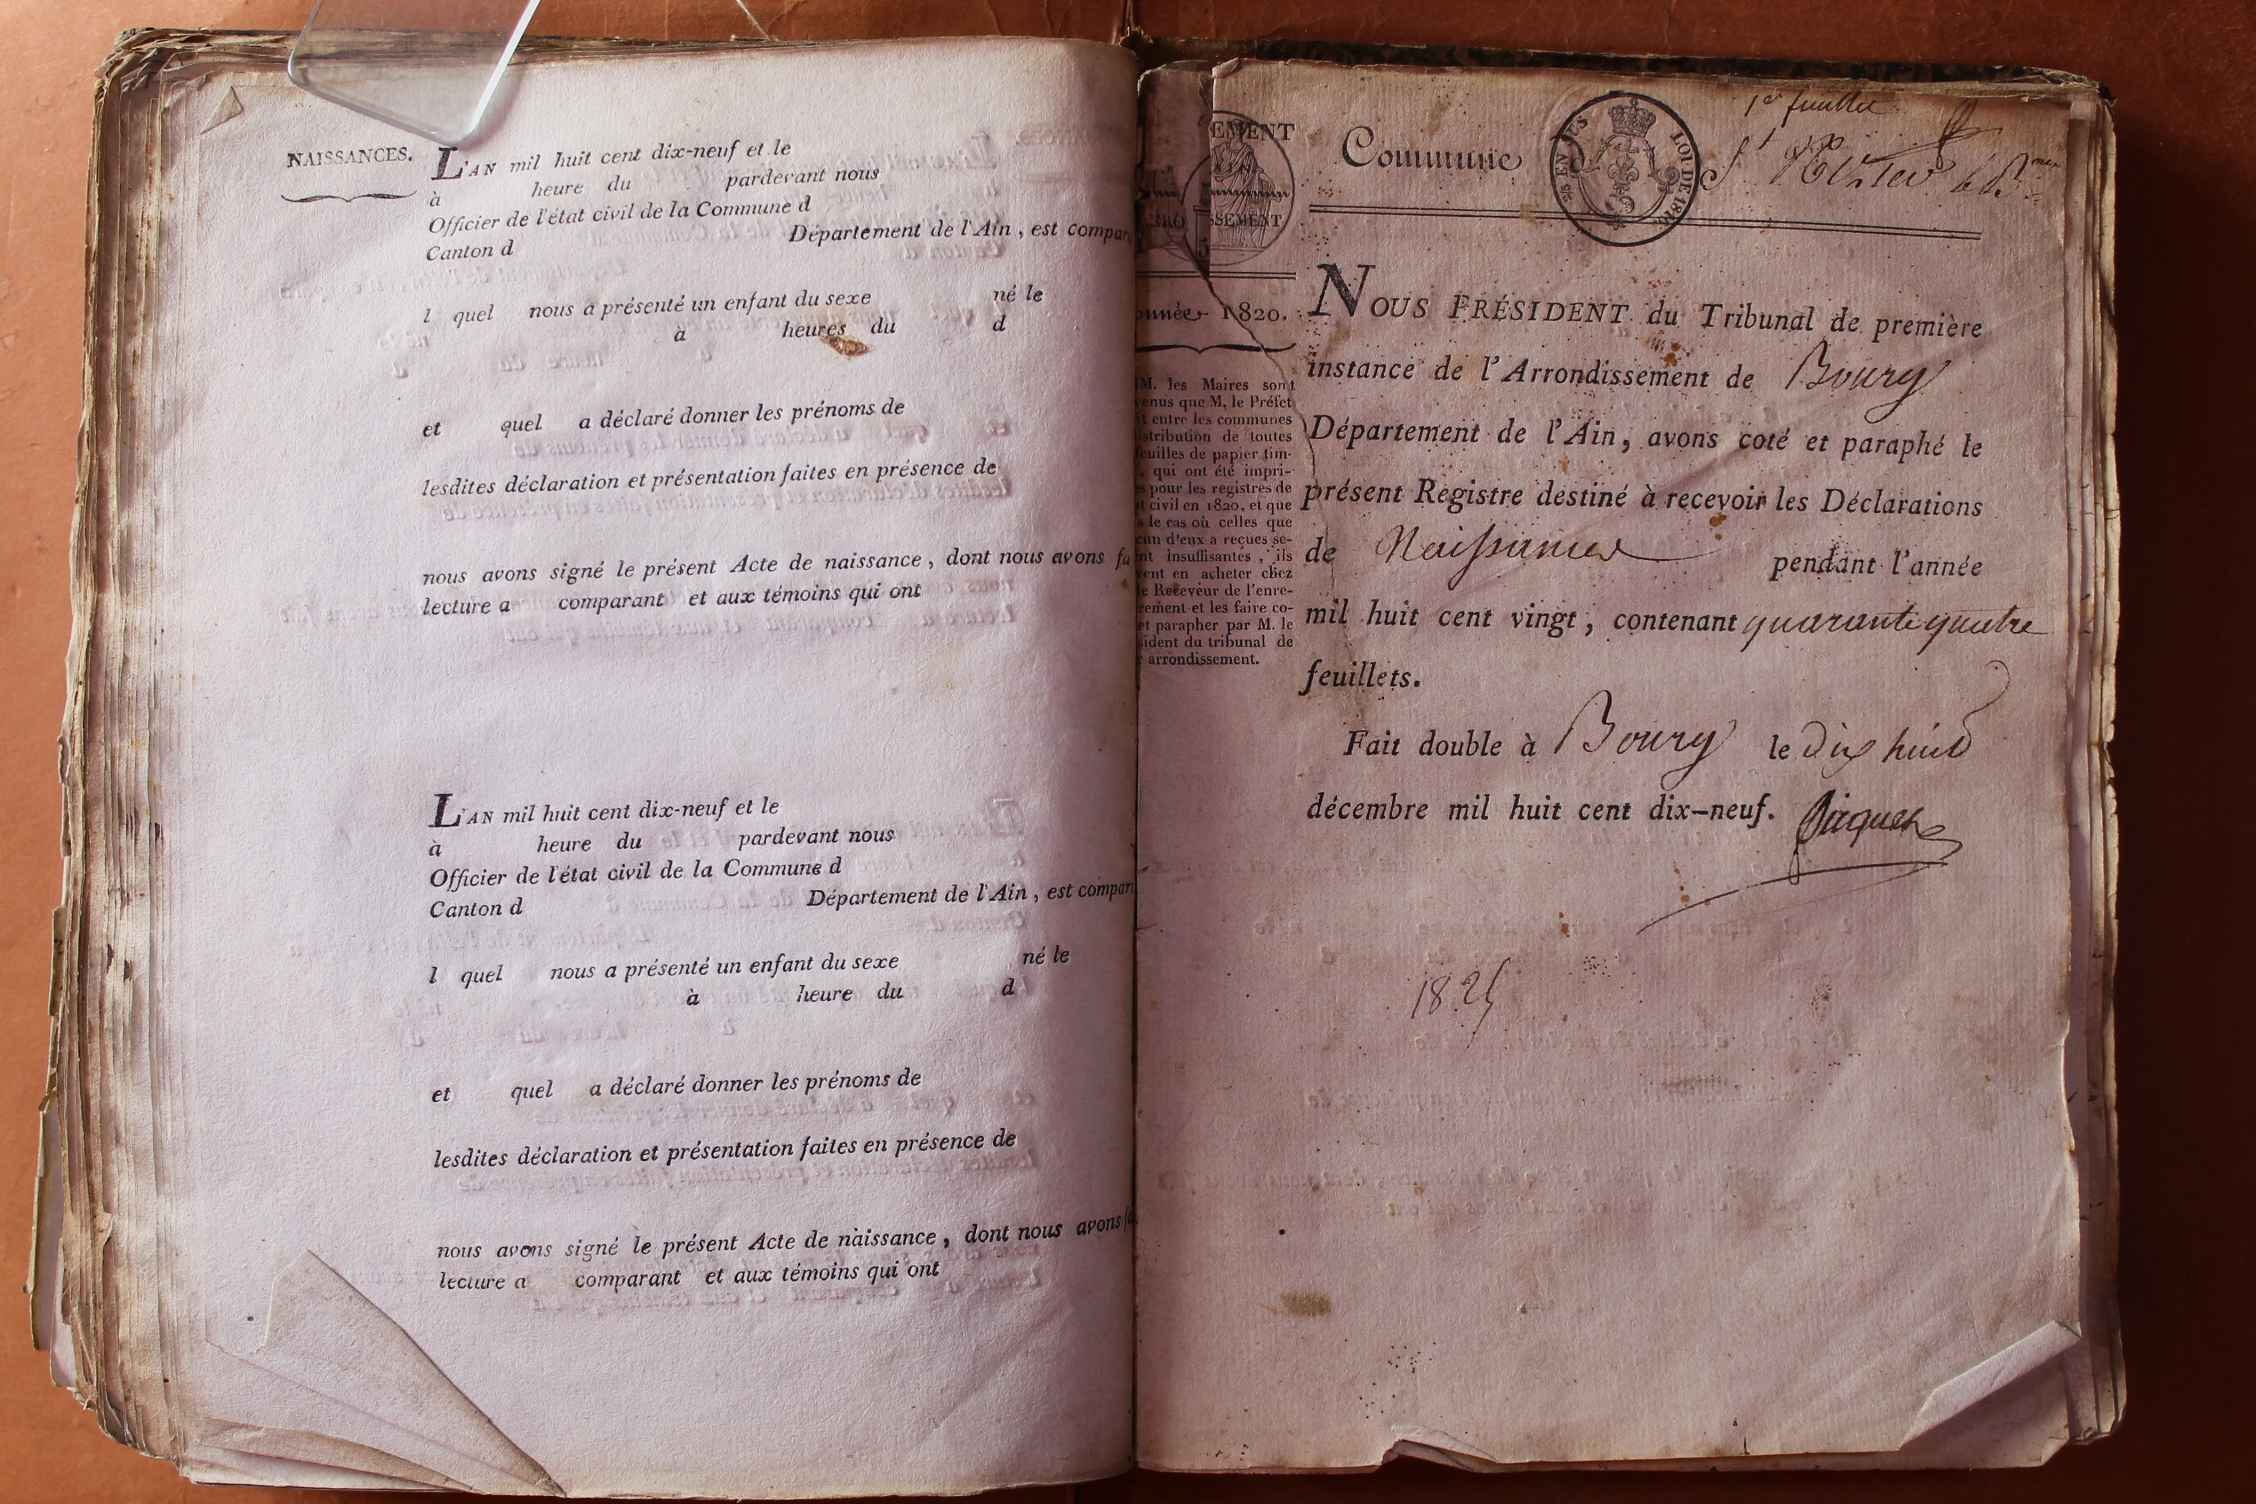 NAISSANCES.
L'AN mil huit cent dix-neuf et le
à heure du pardevant nous
Officier de l'état civil de la Commune d
Canton d Département de l'Ain, est compar
l quel nous a présenté un enfant du sexe né le
à heures du d
et quel a déclaré donner les prénoms de
lesdites déclaration et présentation faites en présence de
nous avons signé le présent Acte de naissance, dont nous avons fa
lecture a comparant et aux témoins qui ont
L'AN mil huit cent dix-neuf et le
à heure du pardevant nous
Officier de l'état civil de la Commune d
Canton d Département de l'Ain, est compar
l quel nous a présenté un enfant du sexe né le
à heure du d
et quel a déclaré donner les prénoms de
lesdites déclaration et présentation faites en présence de
nous avons signé le présent Acte de naissance, dont nous avons
lecture a comparant et aux témoins qui ont
EMENT
SSEMENT
nnée 1820.
M. les Maires sont
venus que M. le Préfet
t entre les communes
stribution de toutes
feuilles de papier tim-
qui ont été impri-
s pour les registres de
t civil en 1820, et que
s le cas où celles que
cun d'eux a reçues se-
nt insuffisantes, ils
vent en acheter chez
le Receveur de l'enre-
rement et les faire co-
et parapher par M. le
sident du tribunal de
r arrondissement.
1er feuillet
Commune St
EN SUS LOI DE 1816
NOUS PRÉSIDENT du Tribunal de première
instance de l'Arrondissement de Bourg
Département de l'Ain, avons coté et paraphé le
présent Registre destiné à recevoir les Déclarations
de Naissances pendant l'année
mil huit cent vingt, contenant quarante quatre
feuillets.
Fait double à Bourg le dix huit
décembre mil huit cent dix-neuf.